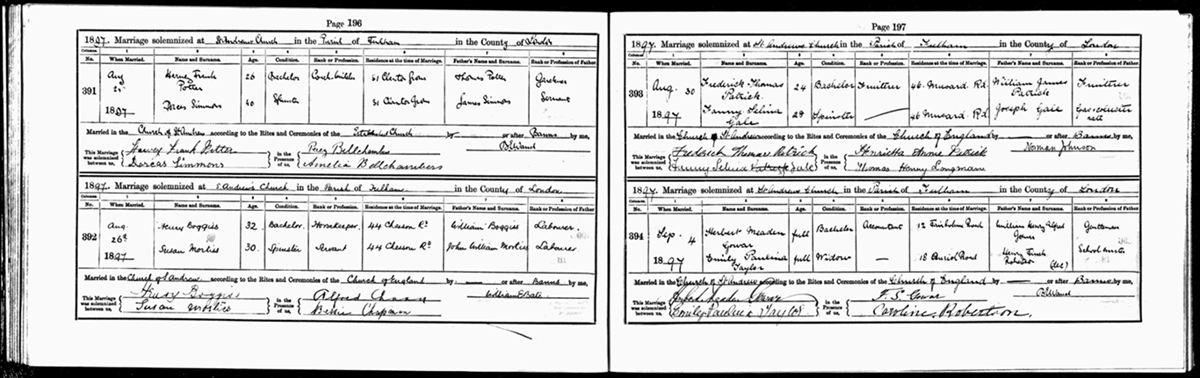 Page 196
1897. Marriage solemnized at St Andrews Church in the Parish of Fulham in the County of London
Columns. 1 2 3 4 5 6 7 8
No. When Married. Name and Surname. Age. Condition. Rank or Profession. Residence at the time of Marriage. Father's Name and Surname. Rank or Profession of Father.
391 Aug Frank 26 Bachelor 51 Potter Gardener
Potter
1897 Dorcas Simmons 40 Spinster 51 James Simmons Servant
Married in the Church of St Andrew according to the Rites and Ceremonies of the Established Church by or after Banns by me,
This Marriage was solemnized between us, Frank Potter in the Presence of us, Bellchambers
Dorcas Simmons Amelia Bellchambers
1897. Marriage solemnized at St Andrew's Church in the Parish of Fulham in the County of London
Columns. 1 2 3 4 5 6 7 8
No. When Married. Name and Surname. Age. Condition. Rank or Profession. Residence at the time of Marriage. Father's Name and Surname. Rank or Profession of Father.
392 Aug. 26th Henry Boggis 32. Bachelor. Horsekeeper. 44 Chesson Rd William Boggis Labourer
1897 Susan Morliss 30. Spinster Servant 44 Chesson Rd John William Morliss Labourer
Married in the Church of Andrew according to the Rites and Ceremonies of the Church of England by or after Banns by me,
William E Bate
This Marriage was solemnized between us, Boggis in the Presence of us, Alfred
Susan Chapman
Page 197
1897. Marriage solemnized at St Andrews Church in the Parish of Fulham in the County of London
Columns. 1 2 3 4 5 6 7 8
No. When Married. Name and Surname. Age. Condition. Rank or Profession. Residence at the time of Marriage. Father's Name and Surname. Rank or Profession of Father.
393 Aug. 30 Frederick Thomas Patrick 24 Bachelor Fruiterer 46. Rd. William James Patrick Fruiterer
1897 Fanny Selina Gale 24 Spinster 46 Rd. Joseph Gale
Married in the Church of St Andrew according to the Rites and Ceremonies of the Church of England by or after Banns by me,
Norman Johnson
This Marriage was solemnized between us, Frederick Thomas Patrick in the Presence of us, Henrietta Annie Patrick
Fanny Selina Gale Thomas Henry Longman
1897. Marriage solemnized at St Andrew Church in the Parish of Fulham in the County of London
Columns. 1 2 3 4 5 6 7 8
No. When Married. Name and Surname. Age. Condition. Rank or Profession. Residence at the time of Marriage. Father's Name and Surname. Rank or Profession of Father.
394 Sep. 4 Herbert Meaden Gowar full Bachelor Accountant 12 Road William Henry Gowar Gentleman
1897 Emily Pauline Taylor full Widow 18 Road Henry Robertson (dec)
Married in the Church of St Andrew according to the Rites and Ceremonies of the Church of England by or after Banns by me,
This Marriage was solemnized between us, Gowar in the Presence of us, F. S. Gowar
Emily Pauline Taylor Caroline Robertson.